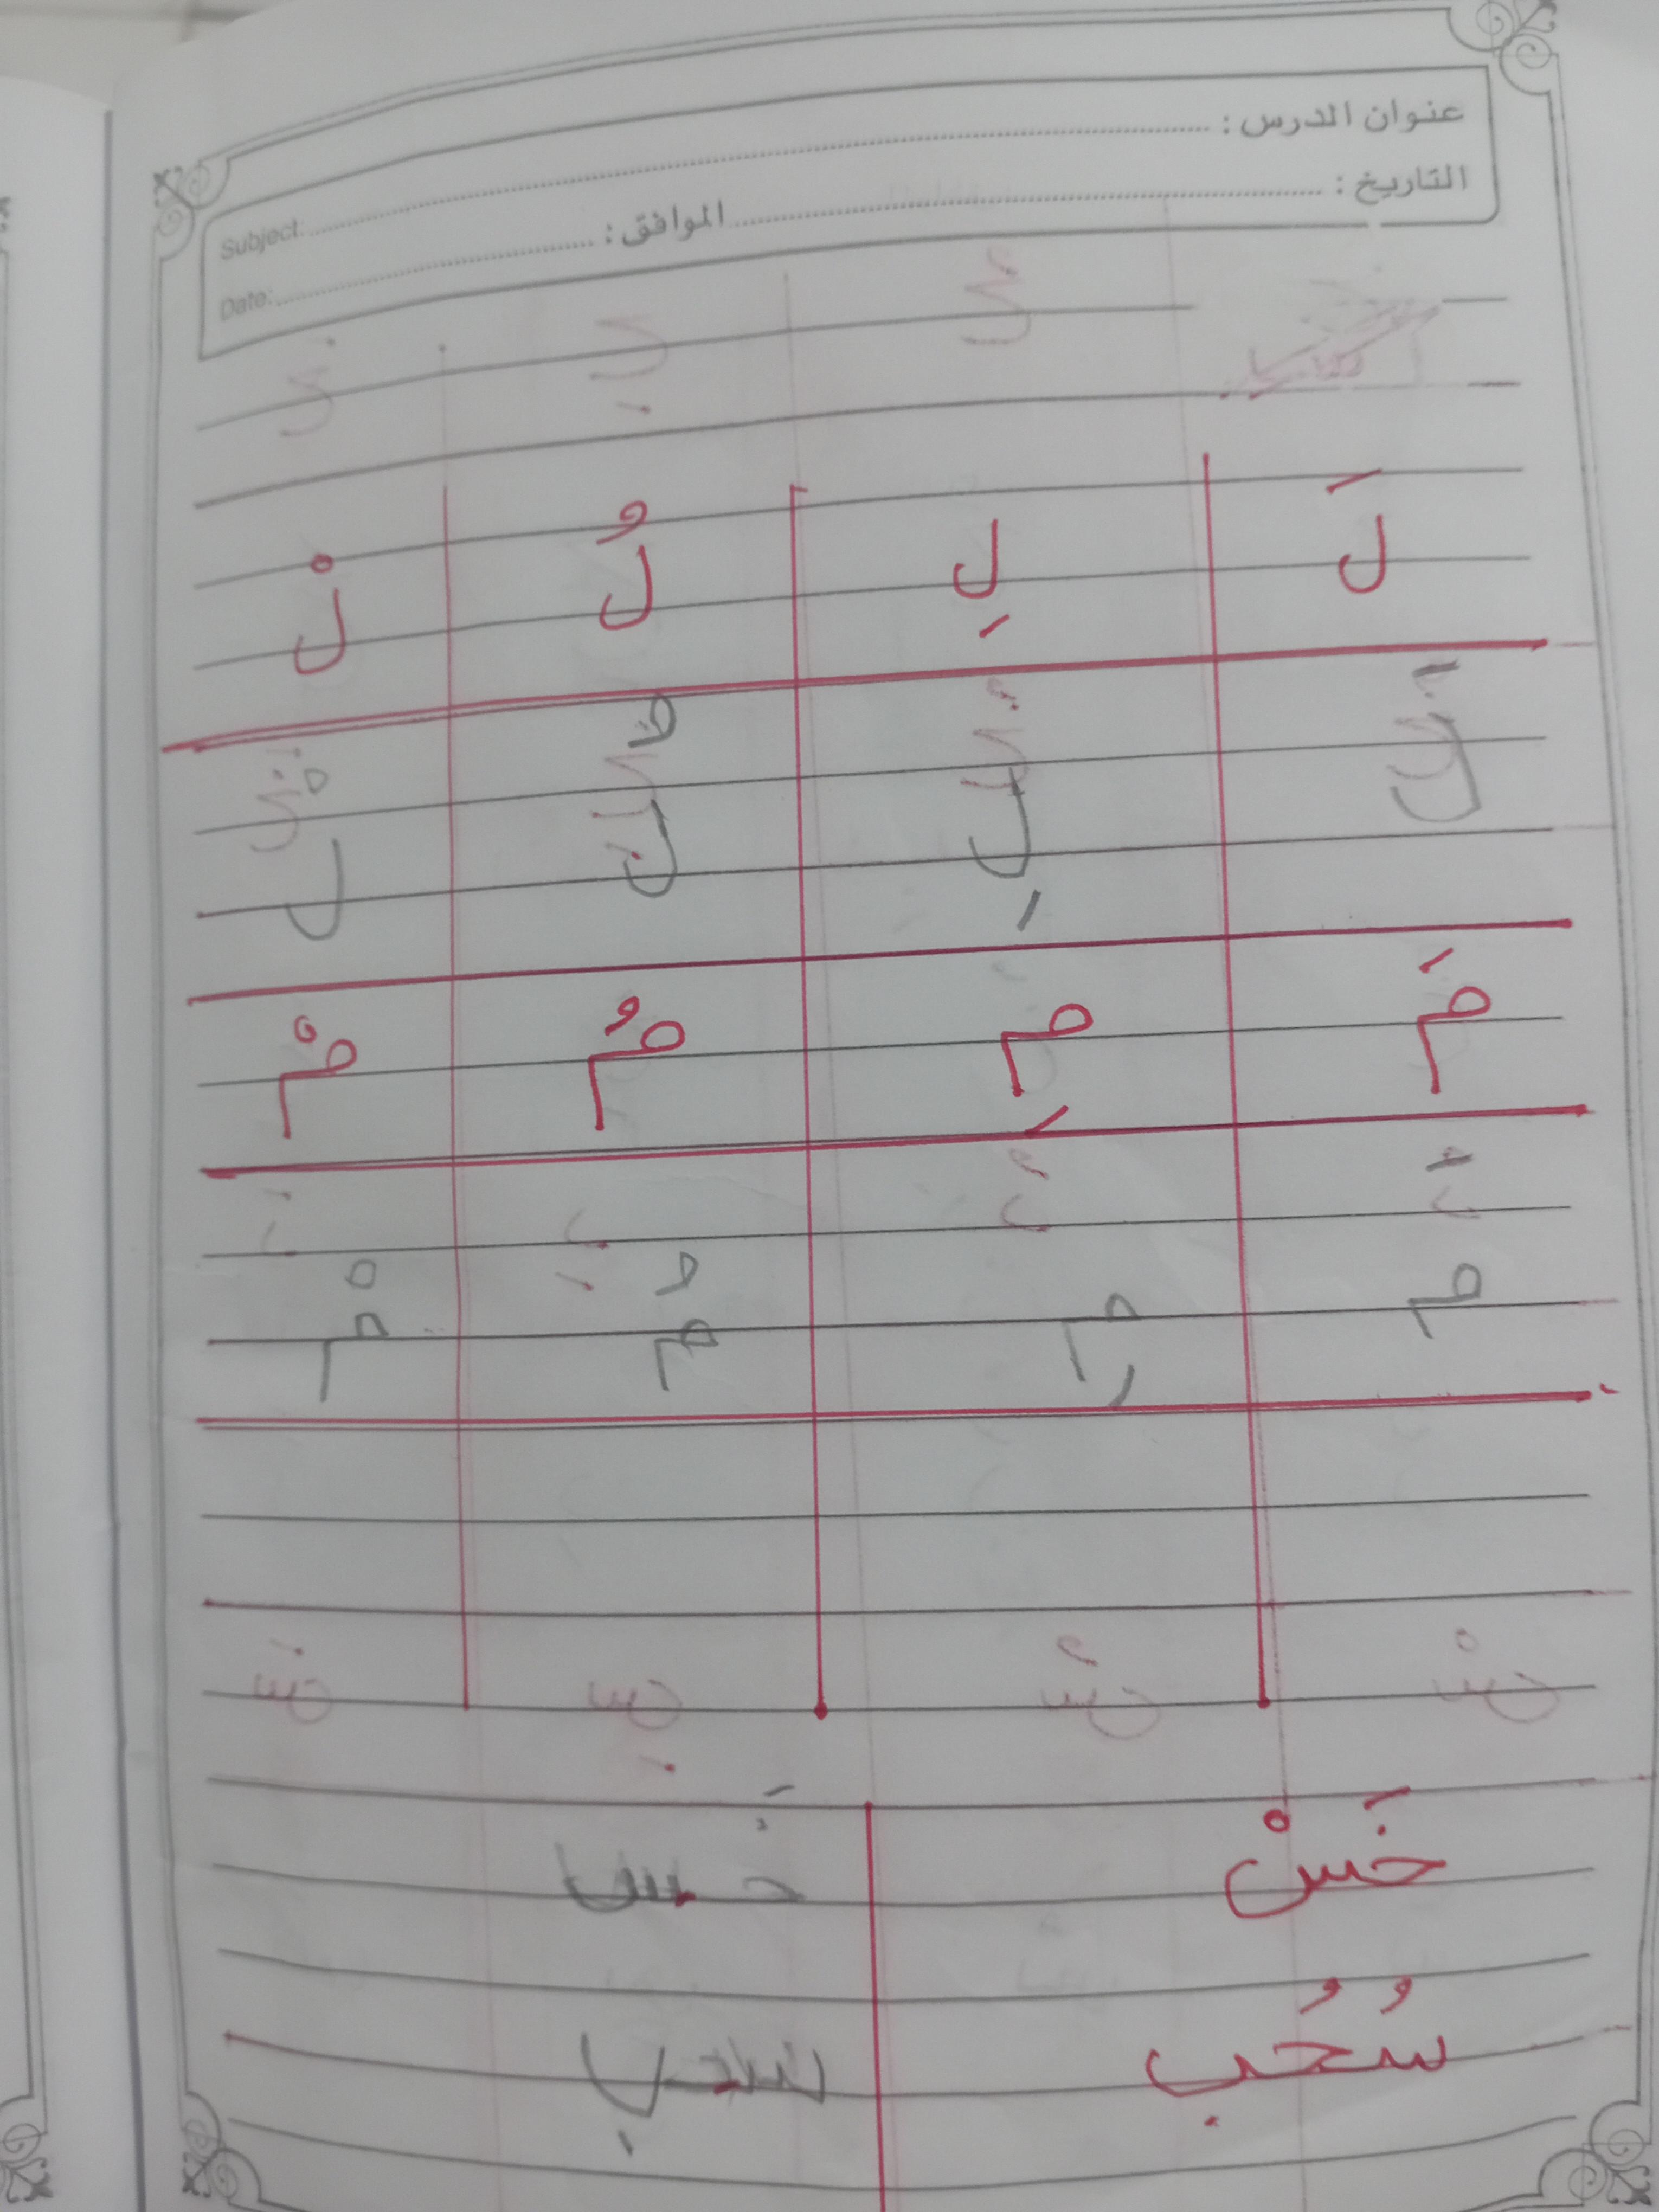 عنوان الدرس : Subject:
التاريخ : الموافق : Date:
لَ لِ لُ لْ
لَ لِ لُ لْ
مَ مِ مُ مْ
مَ مِ مُ مْ
خَسْ خَس
سُحُب سحب